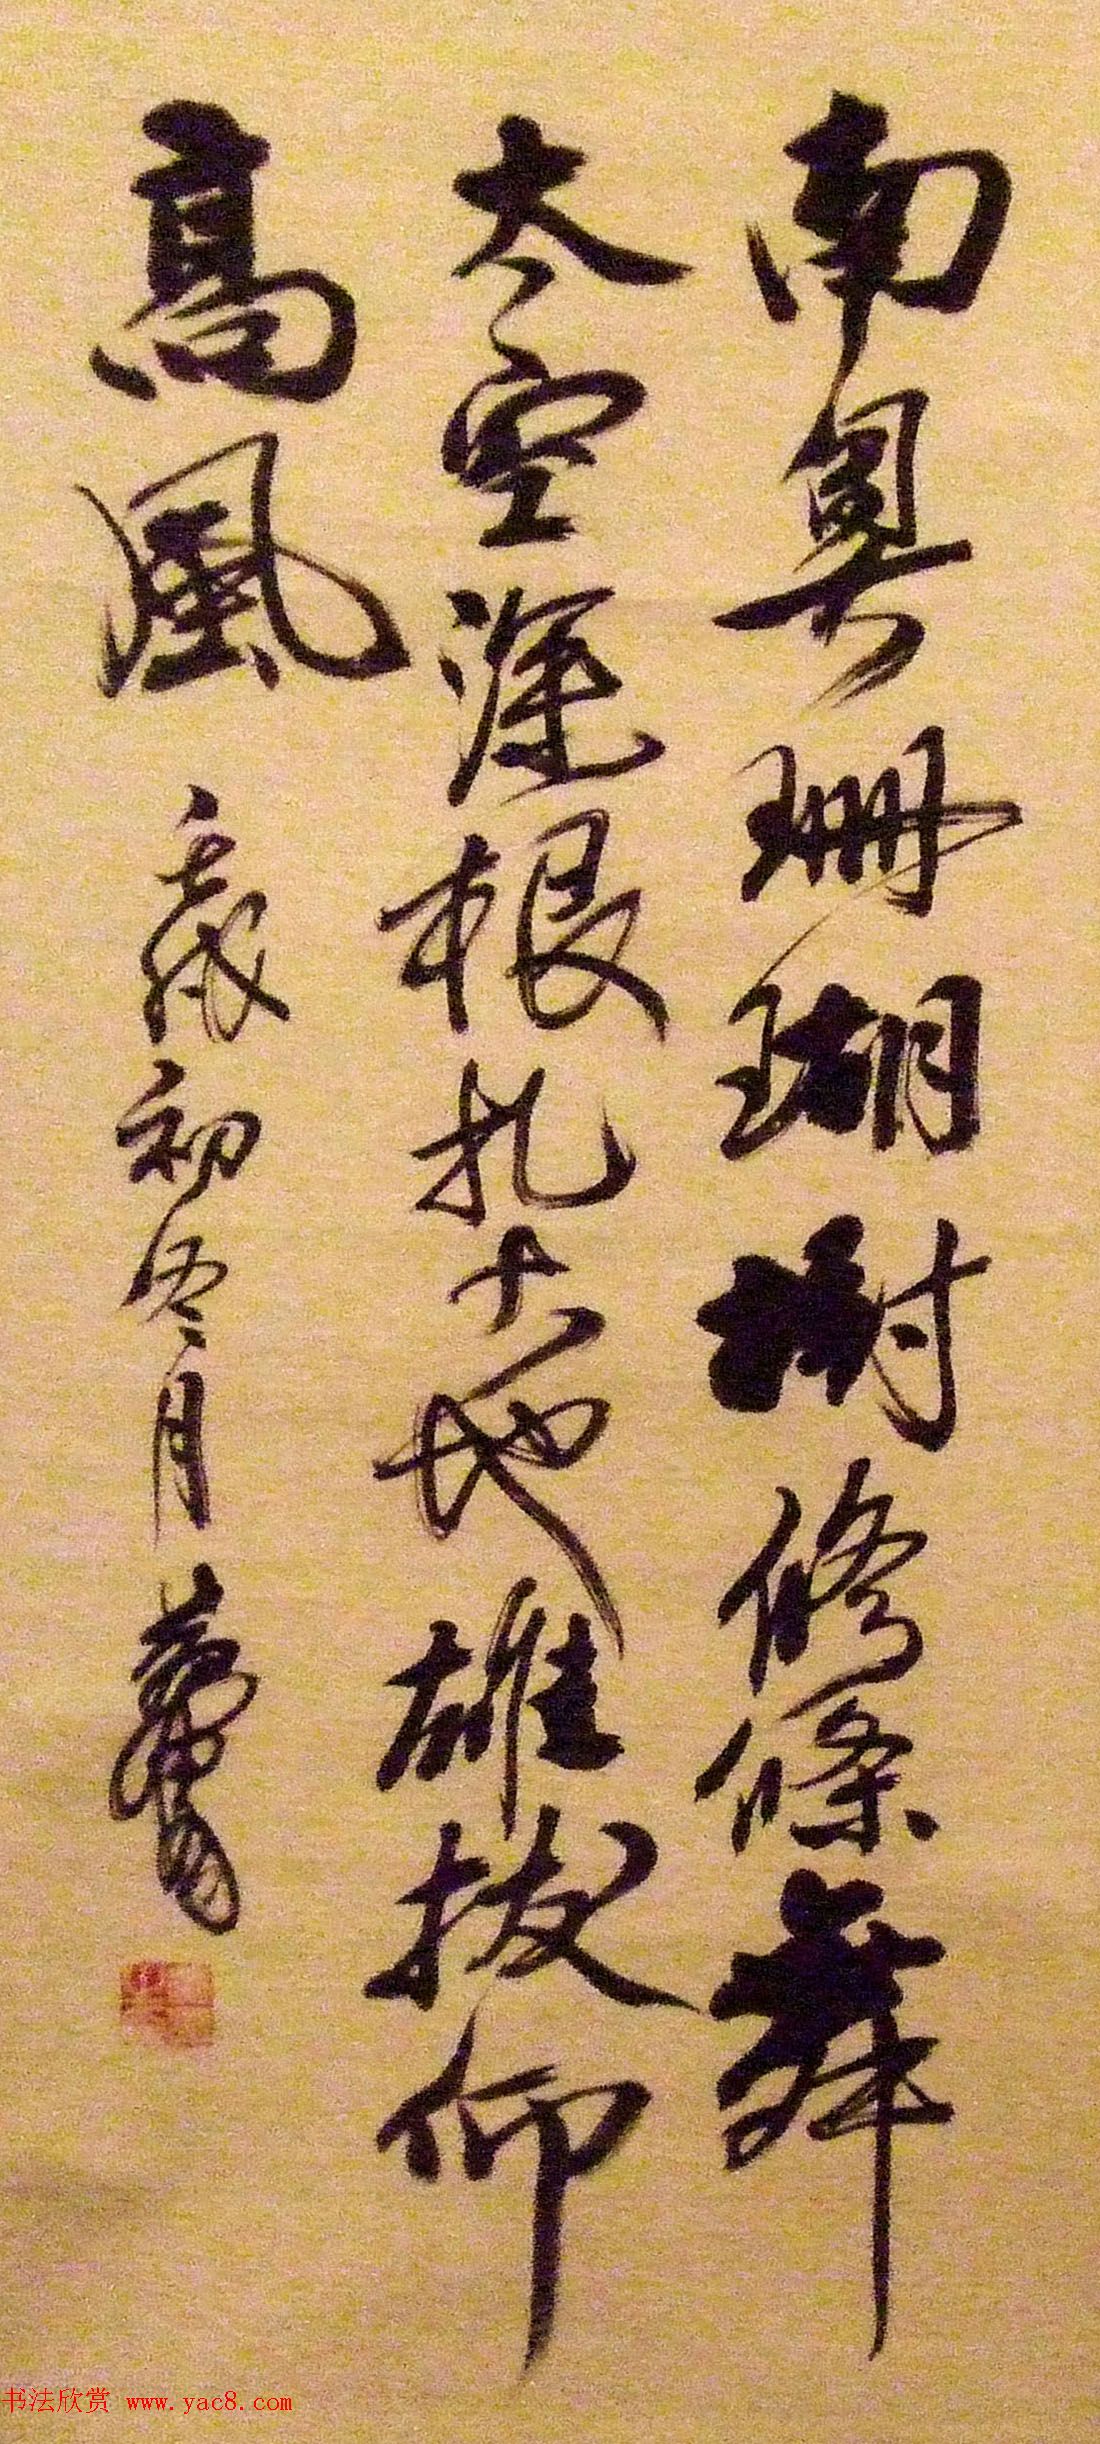 南奥珊瑚樹修條舞
太空深根扎大地雄拔仰
高風
初冬月
书法欣赏 www.yac8.com